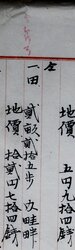 地價 五円九拾四銭
仝
一田 貳畝貳拾五歩 畦畔
地價 拾貳円七拾四銭